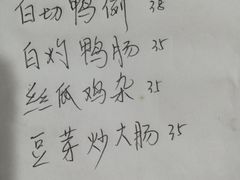 白切鸭例 38
白灼鸭肠 35
丝瓜鸡杂 35
豆芽炒大肠 35